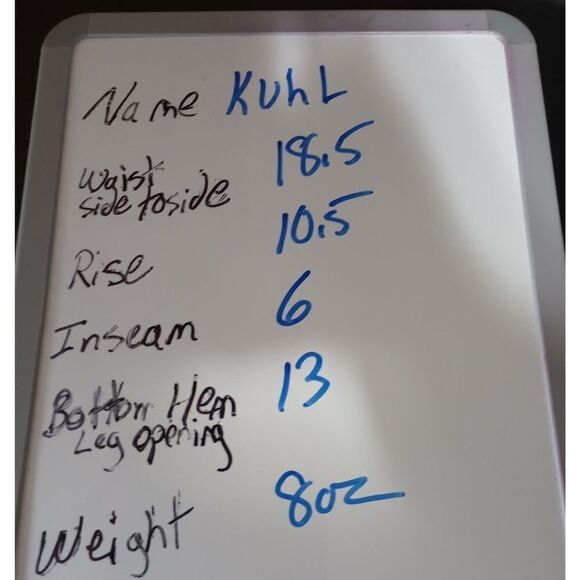 Name KUhL
Waist 18.5
side to side
Rise 10.5
Inseam 6
Bottom Hem 13
Leg opening
Weight 8oz